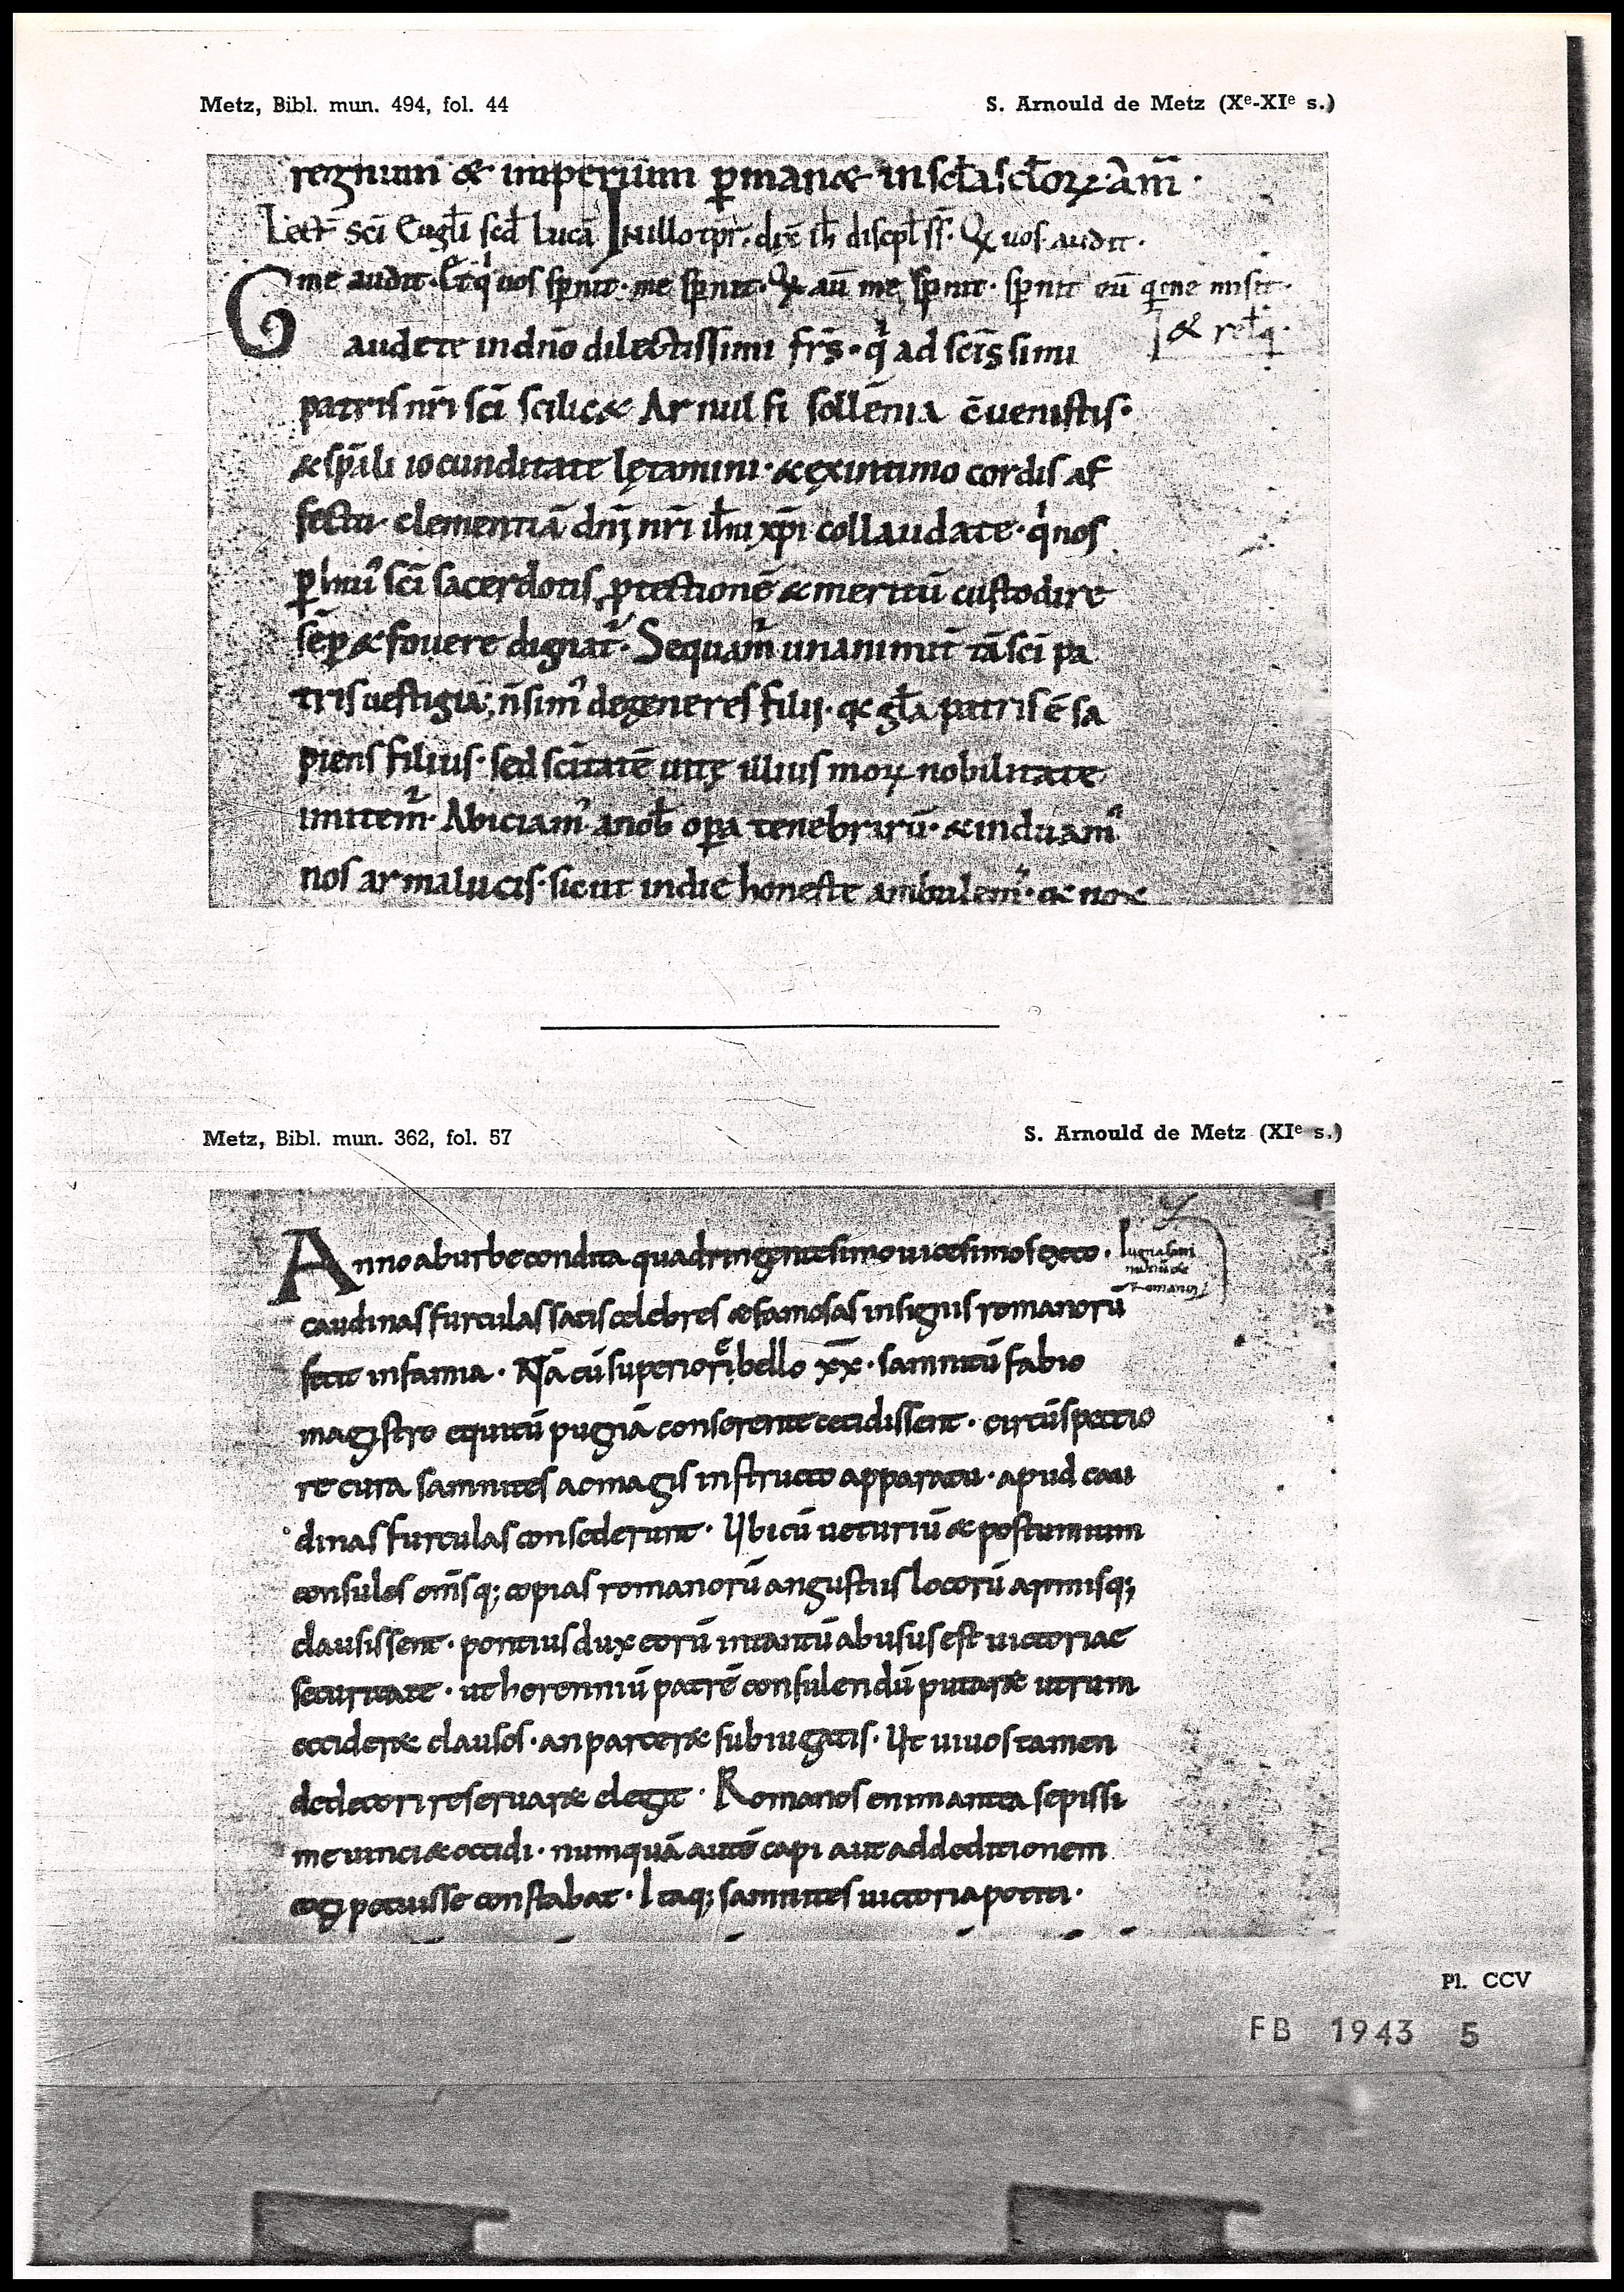 Metz, Bibl. mun. 494, fol. 44
S. Arnould de Metz (Xᵉ-XIᵉ s.)
regnum & imperium p̄man& in sc̄la sc̄loꝝ. Am̄.
Lect̄ sc̄i Eugl̄i scd̄ Lucā In illo tp̄r. dix̄ ih̄ discipl̄ ss̄. Qͥ uos audit.
me audit. Et qͥ uos sp̄nit. me sp̄nit. Qͥ aū me sp̄nit. sp̄nit eū qͥ me misit.
& rel̄q.
Gaudete in dn̄o dilectissimi fr̄s. qͥ ad sc̄issimi
patris nr̄i sc̄i scilic& Arnulfi sollēnia c̄uenistis.
& sp̄ali iocunditate lętamini. & ex intimo cordis af
fectu clementiā dn̄i nr̄i ih̄u xp̄i collaudate. qͥ nos
ꝑ hui᾽ sc̄i sacerdotis, ꝓtectionē & meritū custodire
sēꝑ & fouere dignat᾽. Sequam᾽ unanimit̄ tā sc̄i pa
tris uestigia; n̄ sim᾽ degeneres filii. q& gl̄a patris ē sa
piens filius. sed sc̄itatē uitę illius moꝝ nobilitate
imitem᾽. Abiciam᾽ a nob̄ oꝑa tenebrarū. & induam᾽
nos arma lucis. sicut in die honeste ambulem᾽. q& nox
Metz, Bibl. mun. 362, fol. 57
S. Arnould de Metz (XIᵉ s.)
Anno ab urbe condita quadringentesimo uicesimo sexto.
caudinas furculas satis celebres & famosas insignis romanorū
fecit infamia. Nā cū superiori bello xx. samnitū fabio
magistro equitū pugnā conserente cecidissent. circūspectio
re cura samnites ac magis instructo apparatu. apud cau
dinas furculas consederunt. Ubi cū ueturiū & postumium
consules om̄sq; copias romanorū angustiis locorū armisq;
clausissent. pontius dux eorū in tantū abusus est uictoriae
securitate. ut herenniū patrē consulendū putar& utrum
occider& clausos. an parcer& subiugatis. Ut uiuos tamen
dedecori reseruar& elegit. Romanos enim antea sepissi
me uinci & occidi. numquā autē capi aut ad deditionem
cogi potuisse constabat. Itaq; samnites uictoria potiti.
Pl. CCV
FB 1943 5